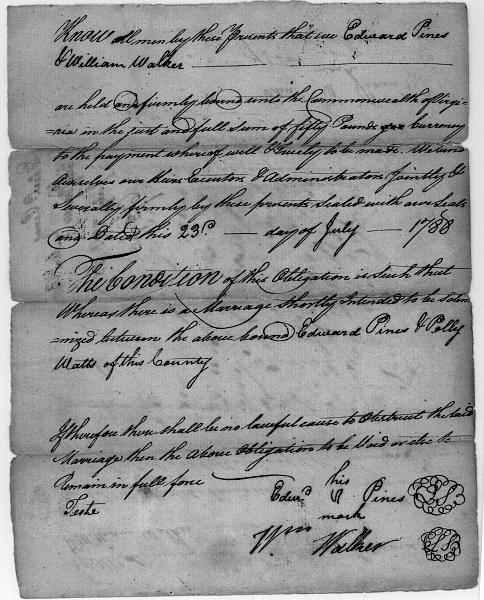 Know all men by these Presents that we Edward Pines
& William Walker
are held and firmly bound unto the Commonwealth of Virgi-
=nia in the just and full sum of fifty Pounds Currency
to the payment whereof well & truely to be made. We bind
Ourselves our Heirs Executors & Administrators Jointly &
Severally firmly by these presents Sealed with our Seals
and Dated this 23d. — day of July — 1788
The Condition of this Obligation is Such that
Whereas there is a Marriage Shortly Intended to be Solem
=nized between the above bound Edward Pines & Polly
Watts of this County
If therefore there shall be no lawful cause to Obstruct the said
Marriage then the above Obligation to be Void or else to
Remain in full force
Teste
his
Edwd. Pines LS
mark
Wm Walker LS